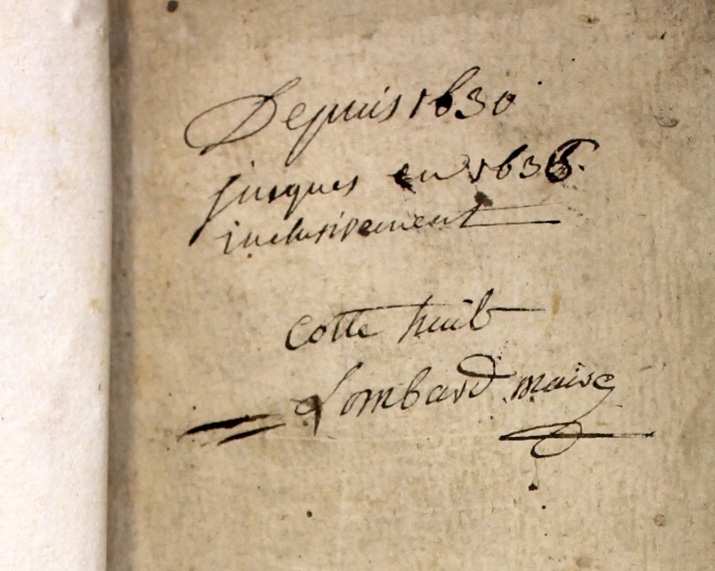 Depuis 1630
jusques en 1636
inclusivement
cotte huit
Lombard maire